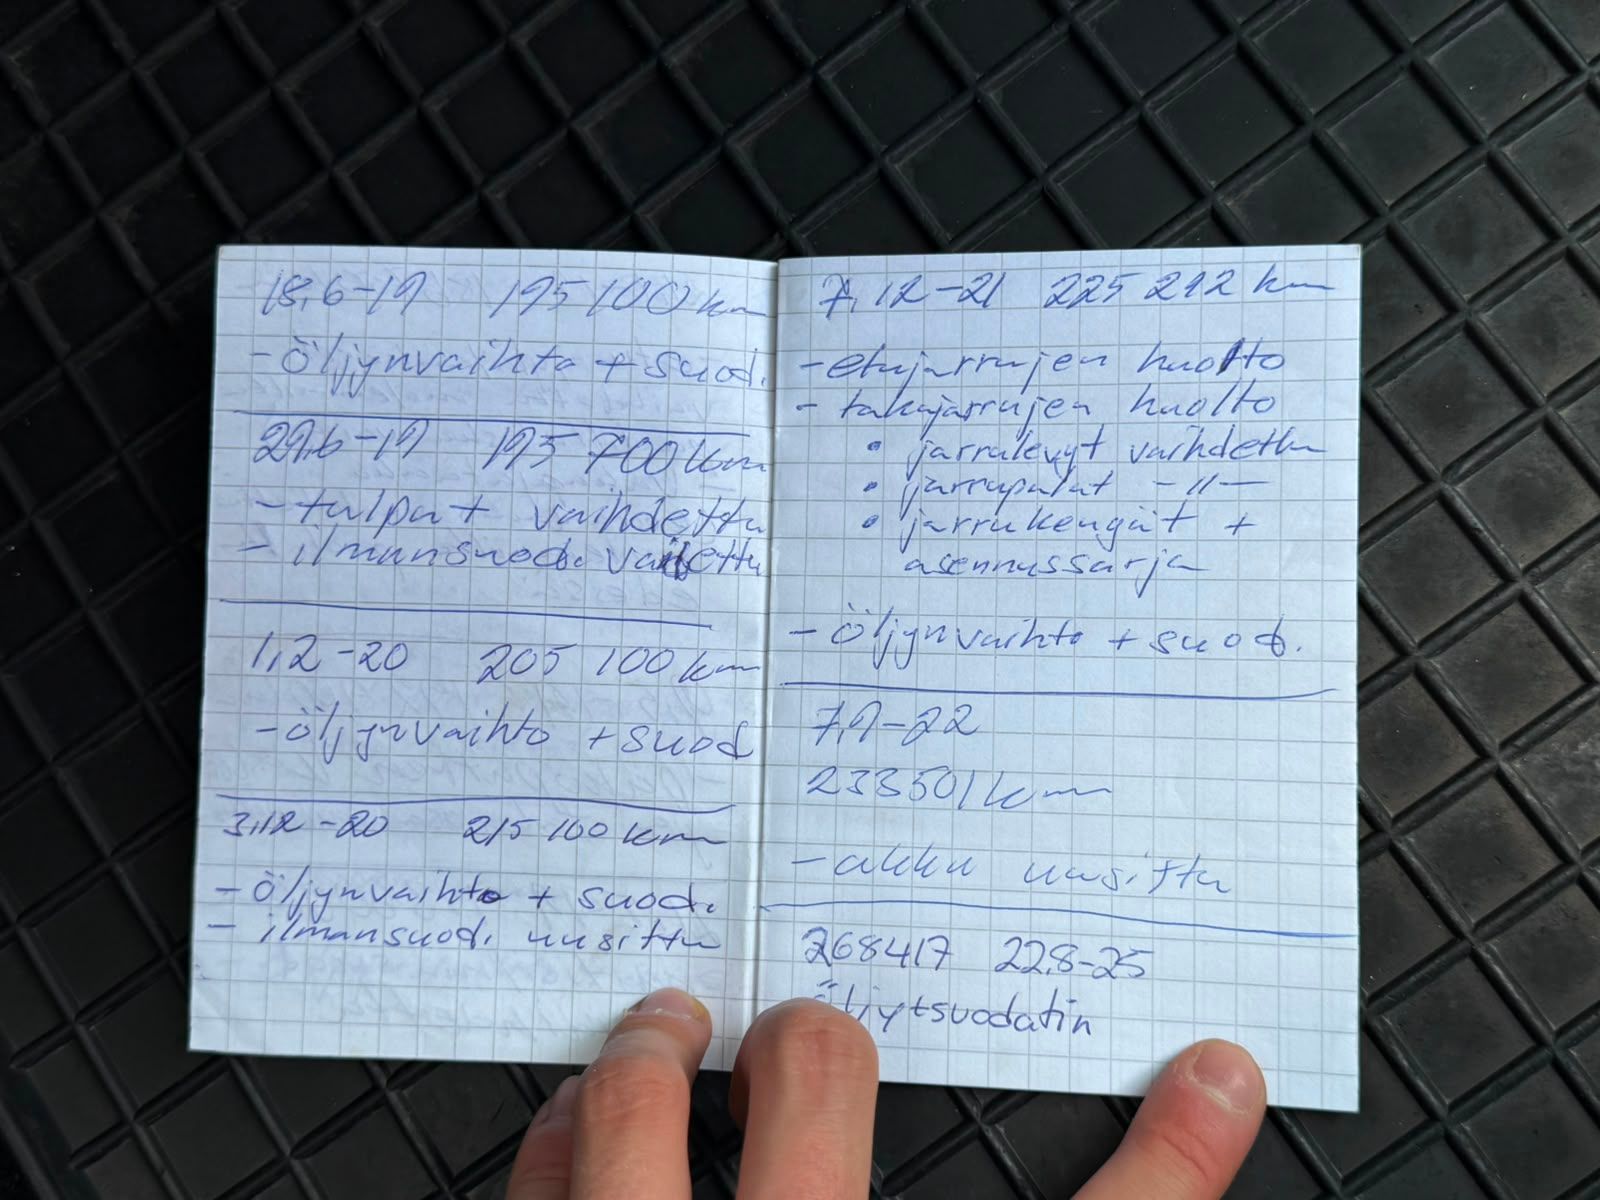 18,6-19 195 100 km
- Öljynvaihto + suod.
29,6-19 195 700 km
- tulpat vaihdettu
- ilmansuod. vaihdettu
1,2-20 205 100 km
- Öljynvaihto + suod
3,12-20 215 100 km
- Öljynvaihto + suod.
- ilmansuod. uusittu
7,12-21 225 292 km
- etujarrujen huolto
- takajarrujen huolto
• jarrulevyt vaihdettu
• jarrupalat -"-
• jarrukengät +
asennussarja
- Öljynvaihto + suod.
7,9-22
233501 km
- akku uusittu
268417 22,8-25
Öljy+suodatin